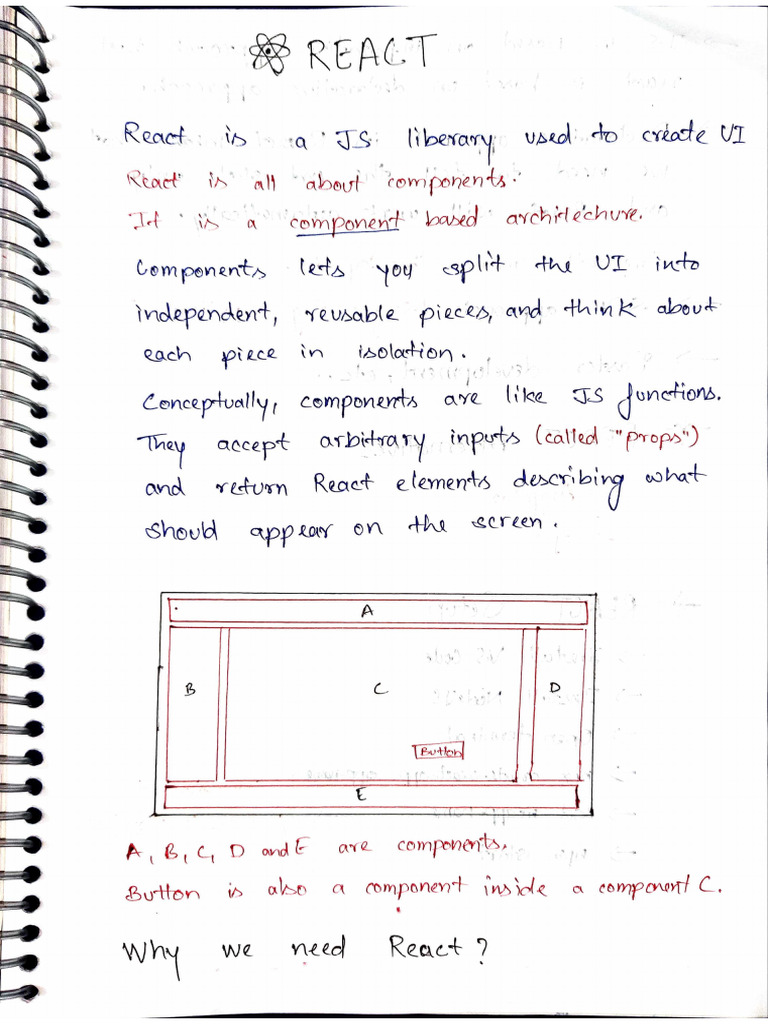 REACT
React is a JS liberary used to create UI
React is all about components.
It is a component based architechure.
Components lets you split the UI into
independent, reusable pieces, and think about
each piece in isolation.
Conceptually, components are like JS functions.
They accept arbitrary inputs (called "props")
and return React elements describing what
should appear on the screen.
A
B C D
Button
E
A, B, C, D and E are components.
Button is also a component inside a component C.
Why we need React?